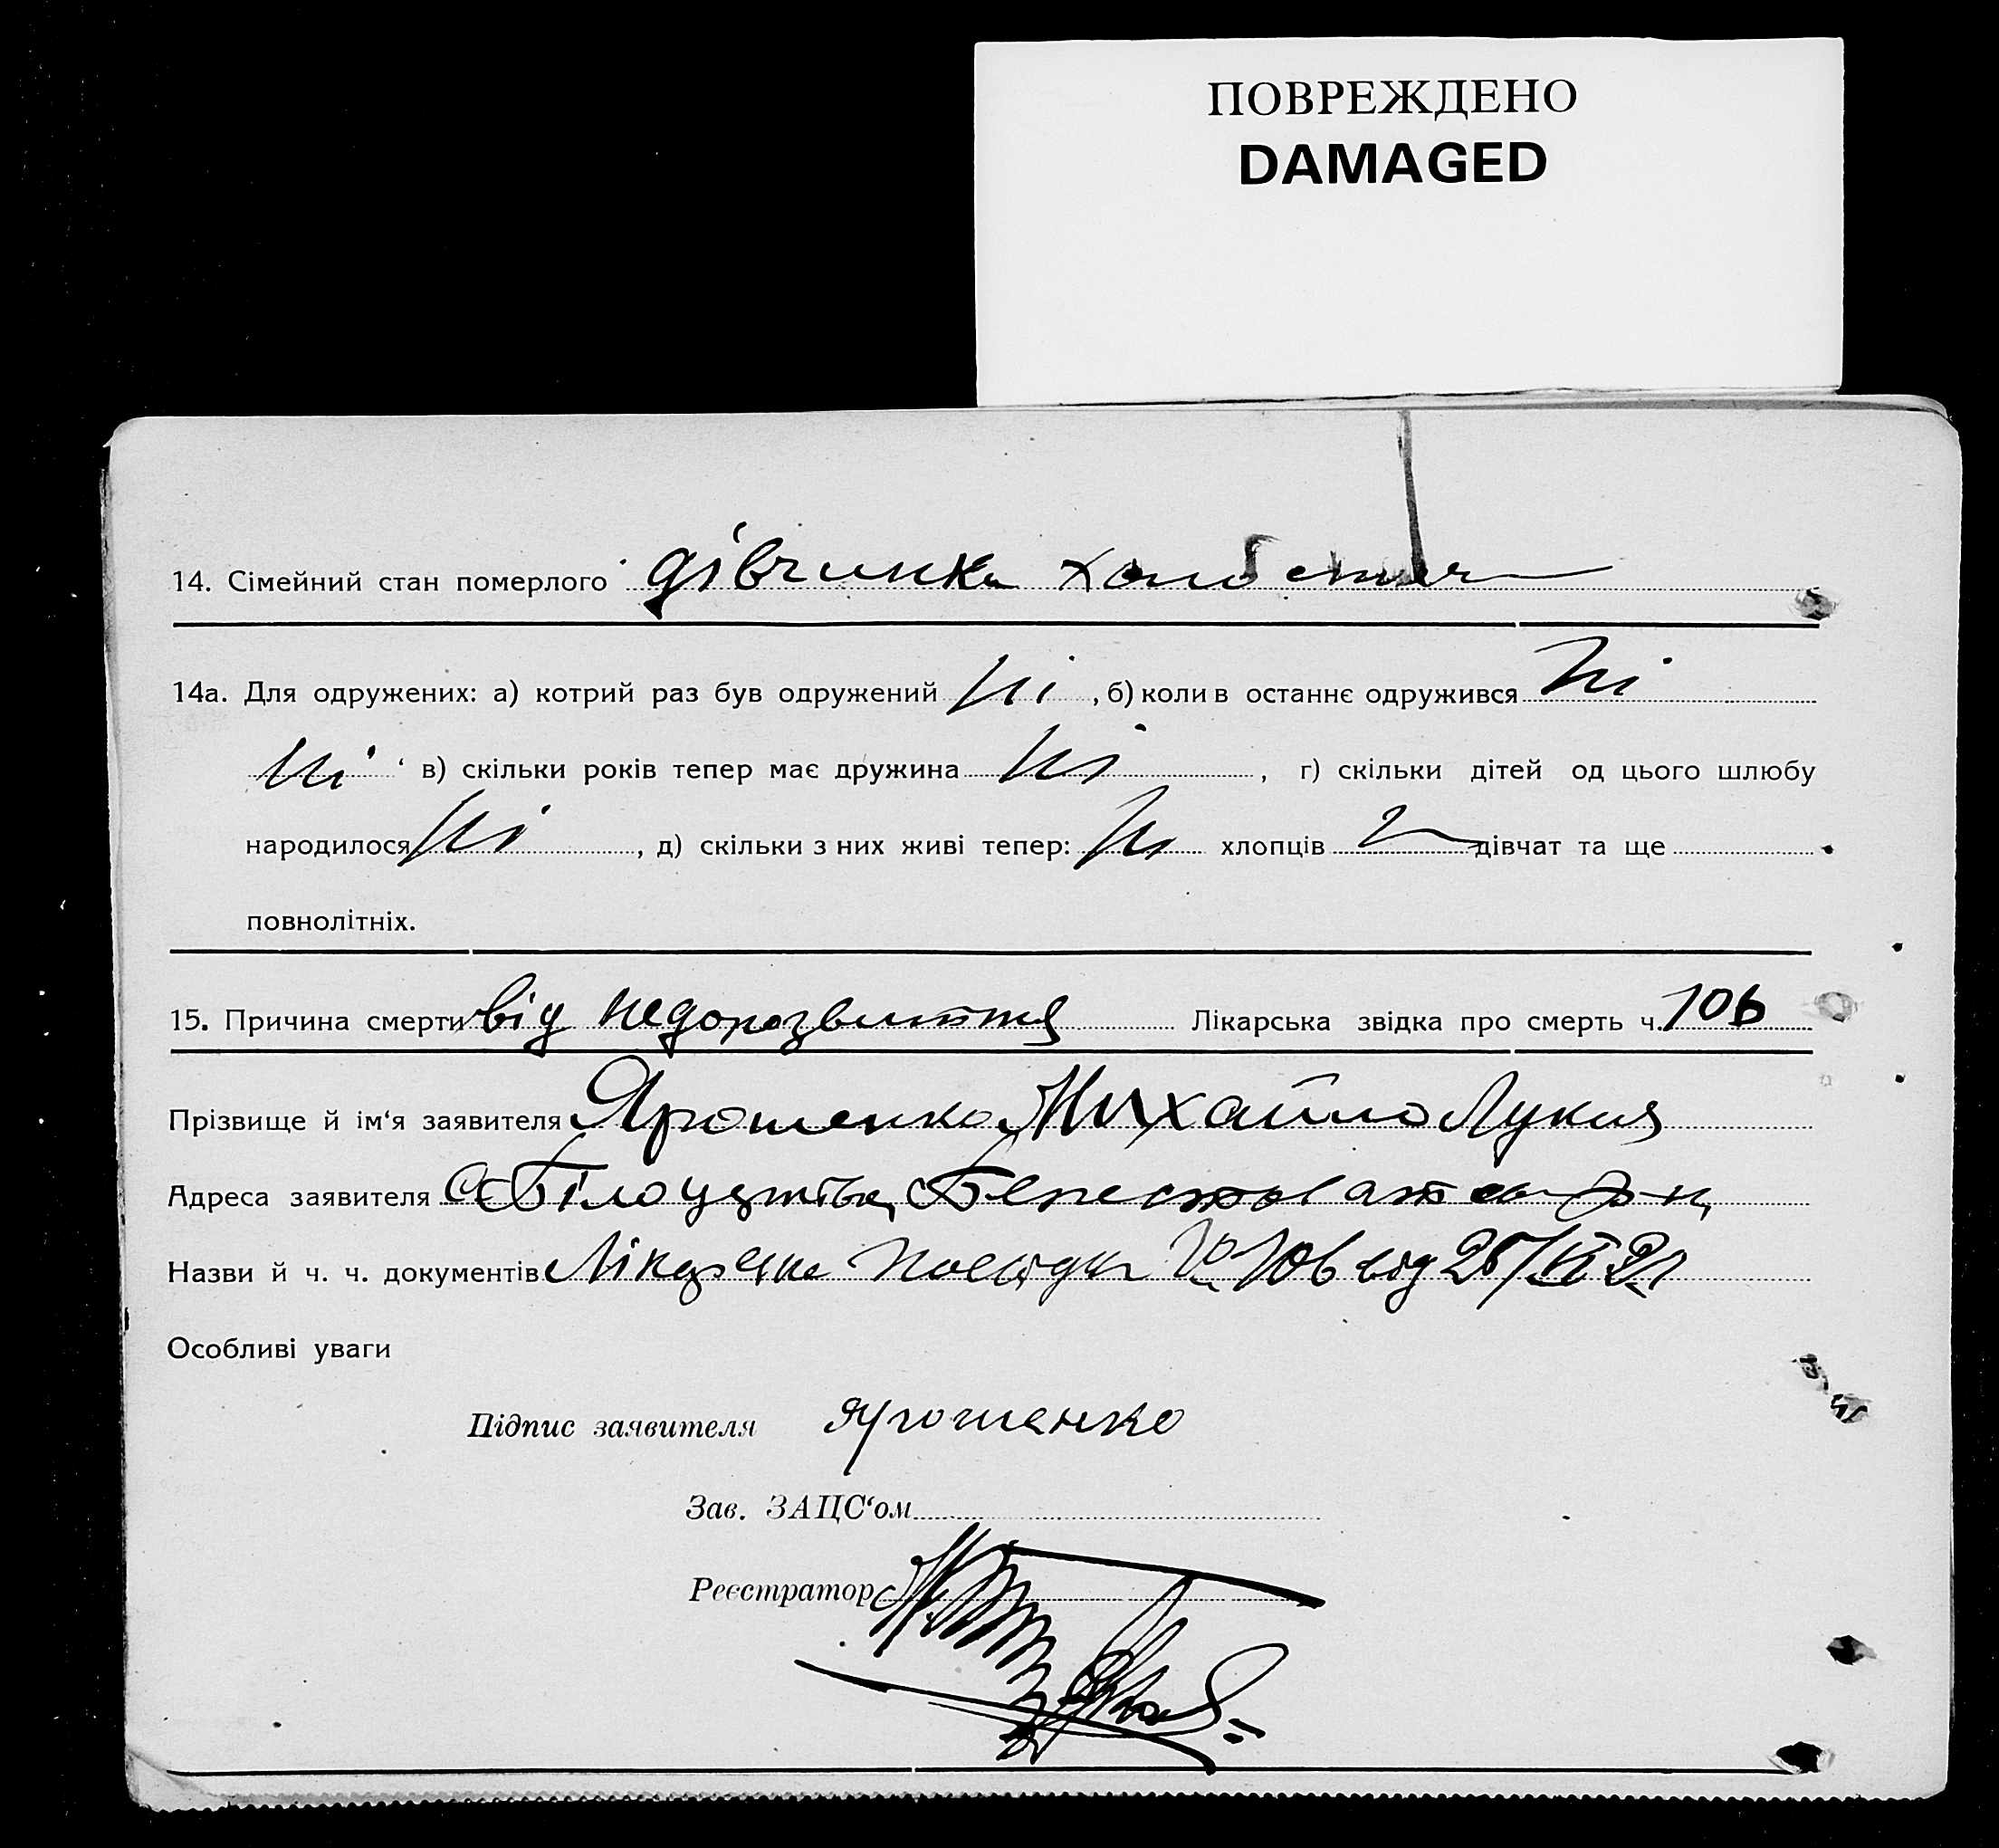 ПОВРЕЖДЕНО
DAMAGED
14. Сімейний стан померлого дівчинка
14а. Для одружених: а) котрий раз був одружений ні, б) коли в останнє одружився ні
ні в) скільки років тепер має дружина ні, г) скільки дітей од цього шлюбу
народилося ні, д) скільки з них живі тепер: ні хлопців дівчат та ще
повнолітніх.
15. Причина смерти від недорозвиття Лікарська звідка про смерть ч. 106
Прізвище й ім‘я заявителя Ярошенко Михайло Лукич
Адреса заявителя
Назви й ч. ч. документів № 106 від
Особливі уваги
Підпис заявителя Ярошенко
Зав. ЗАЦС‘ом
Реєстратор